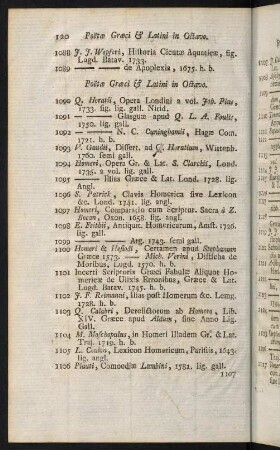 120 Poëtæ Græci & Latini in Octavo.
1088 J. J. Wepferi, Historia Cicutæ Aquaticæ, fig.
Lugd. Batav. 1733.
1089 —— —— de Apoplexia, 1675. h. b.
Poëtæ Græci & Latini in Octavo.
1090 Q. Horatii, Opera Londini 2 vol. Joh. Pine,
1733. fig. lig. gall. Nitid.
1091 —— —— Glasguæ apud Q. L. A. Foulis,
1750. lig. gall.
1092 —— —— N. C. Cuninghamii, Hagæ Com.
1721. h. b.
1093 V. Gaudii, Differt. ad Q. Horatium, Wittenb.
1760. semi gall.
1094 Homeri, Opera Gr. & Lat. S. Clarckii, Lond.
1735. 2 vol. lig. gall.
1095 —— Ilias Græce & Lat. Lond. 1728. lig.
Angl.
1096 S. Patrick, Clavis Homerica sive Lexicon
&c. Lond. 1741. lig. angl.
1097 Homeri, Comparatio cum scriptor. Sacra á Z.
Bocan, Oxon. 1658. lig. angl.
1098 E. Feithii, Antiquit. Homericarum, Amst. 1726.
lig. gall.
1099 —— —— Arg. 1743. semi gall.
1100 Homeri & Hesiodi, Certamen apud Stephanum
Græce 1573. — Mich. Verini, Disticha de
Moribus, Lugd. 1570. h. b.
1101 Incerti Scriptoris Græci Fabulæ Aliquot Ho-
mericæ de Ulixis Erroribus, Græce & Lat.
Lugd. Batav. 1745. h. b.
1102 J. F. Reimanni, Ilias post Homerum &c. Lemg.
1728. h. b.
1103 Q. Calabri, Derelictorum ab Homero, Lib.
XIV. Græce apud Aldum, sine Anno Lig.
Gall.
1104 M. Moschopulus, in Homeri Iliadem Gr. & Lat.
Traj. 1719. h. b.
1105 L. Coulon, Lexicon Homericum, Parisiis, 1643.
lig. angl.
1106 Plauti, Comoediæ Lambini, 1581. lig. gall.
1107